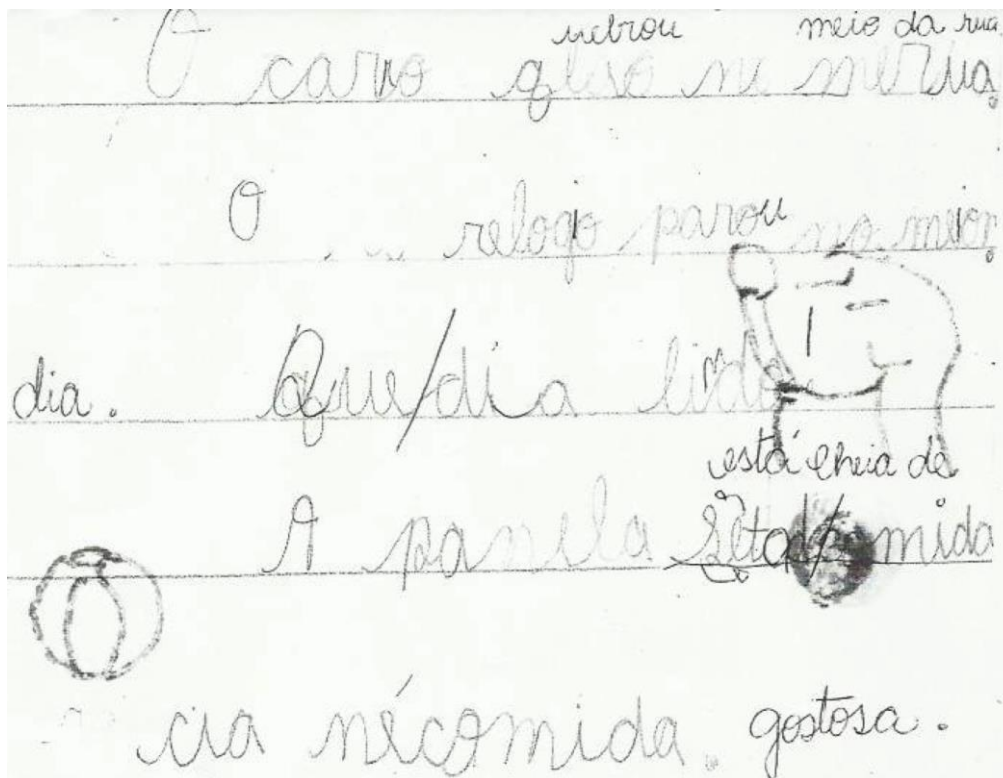 uebrou meio da rua
O carro q
O relogio parou no meior
dia. Que/dia lindo
está cheia de
A panela mida
cia nécomida. gostosa.